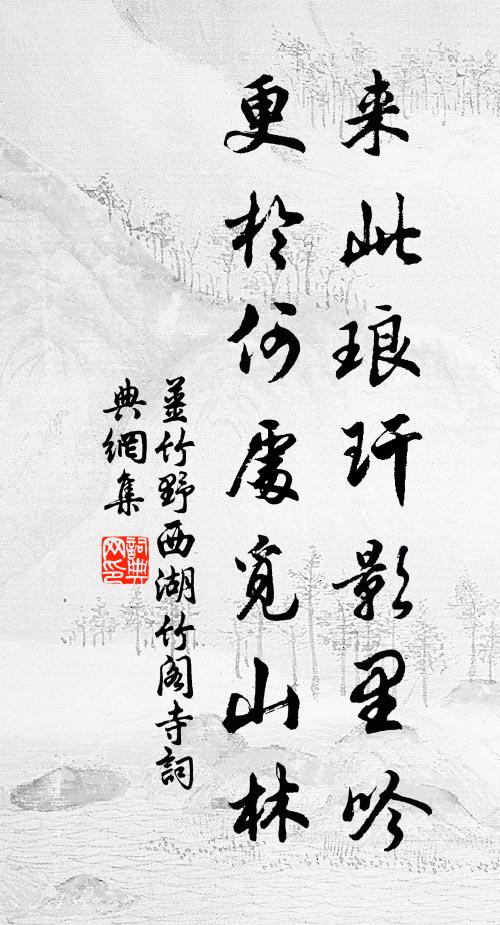 来此琅玕影里吟
更於何處觅山林
薑竹野西湖竹阁寺詞
典網集
詞典
网印